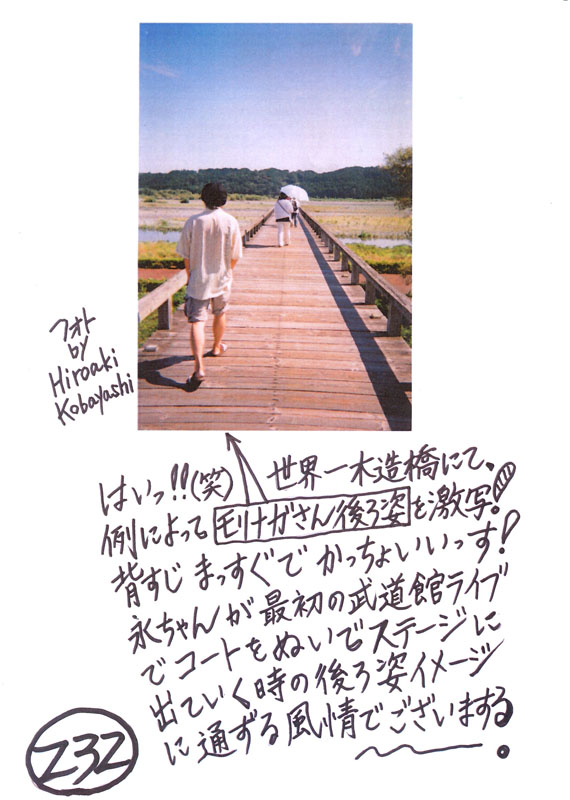 フォト
by
Hiroaki
Kobayashi
はいっ!!(笑) 世界一木造橋にて、
例によってモリナガさん後ろ姿を激写!
背すじ まっすぐで かっちょいいっす!
永ちゃんが最初の武道館ライブ
でコートをぬいでステージに
出ていく時の後ろ姿イメージ
に通ずる風情でございまする!
232